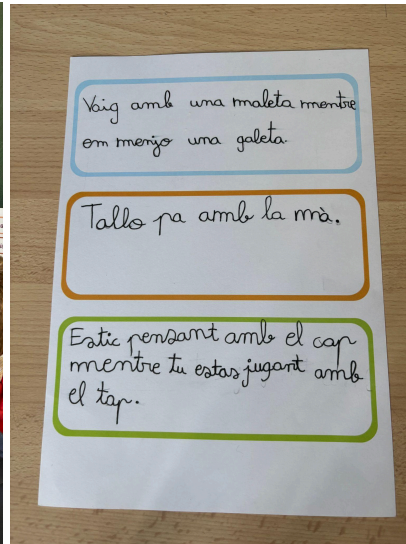 Vaig amb una maleta mentre
em menjo una galeta.
Tallo pa amb la mà.
Estic pensant amb el cap
mentre tu estas jugant amb
el tap.